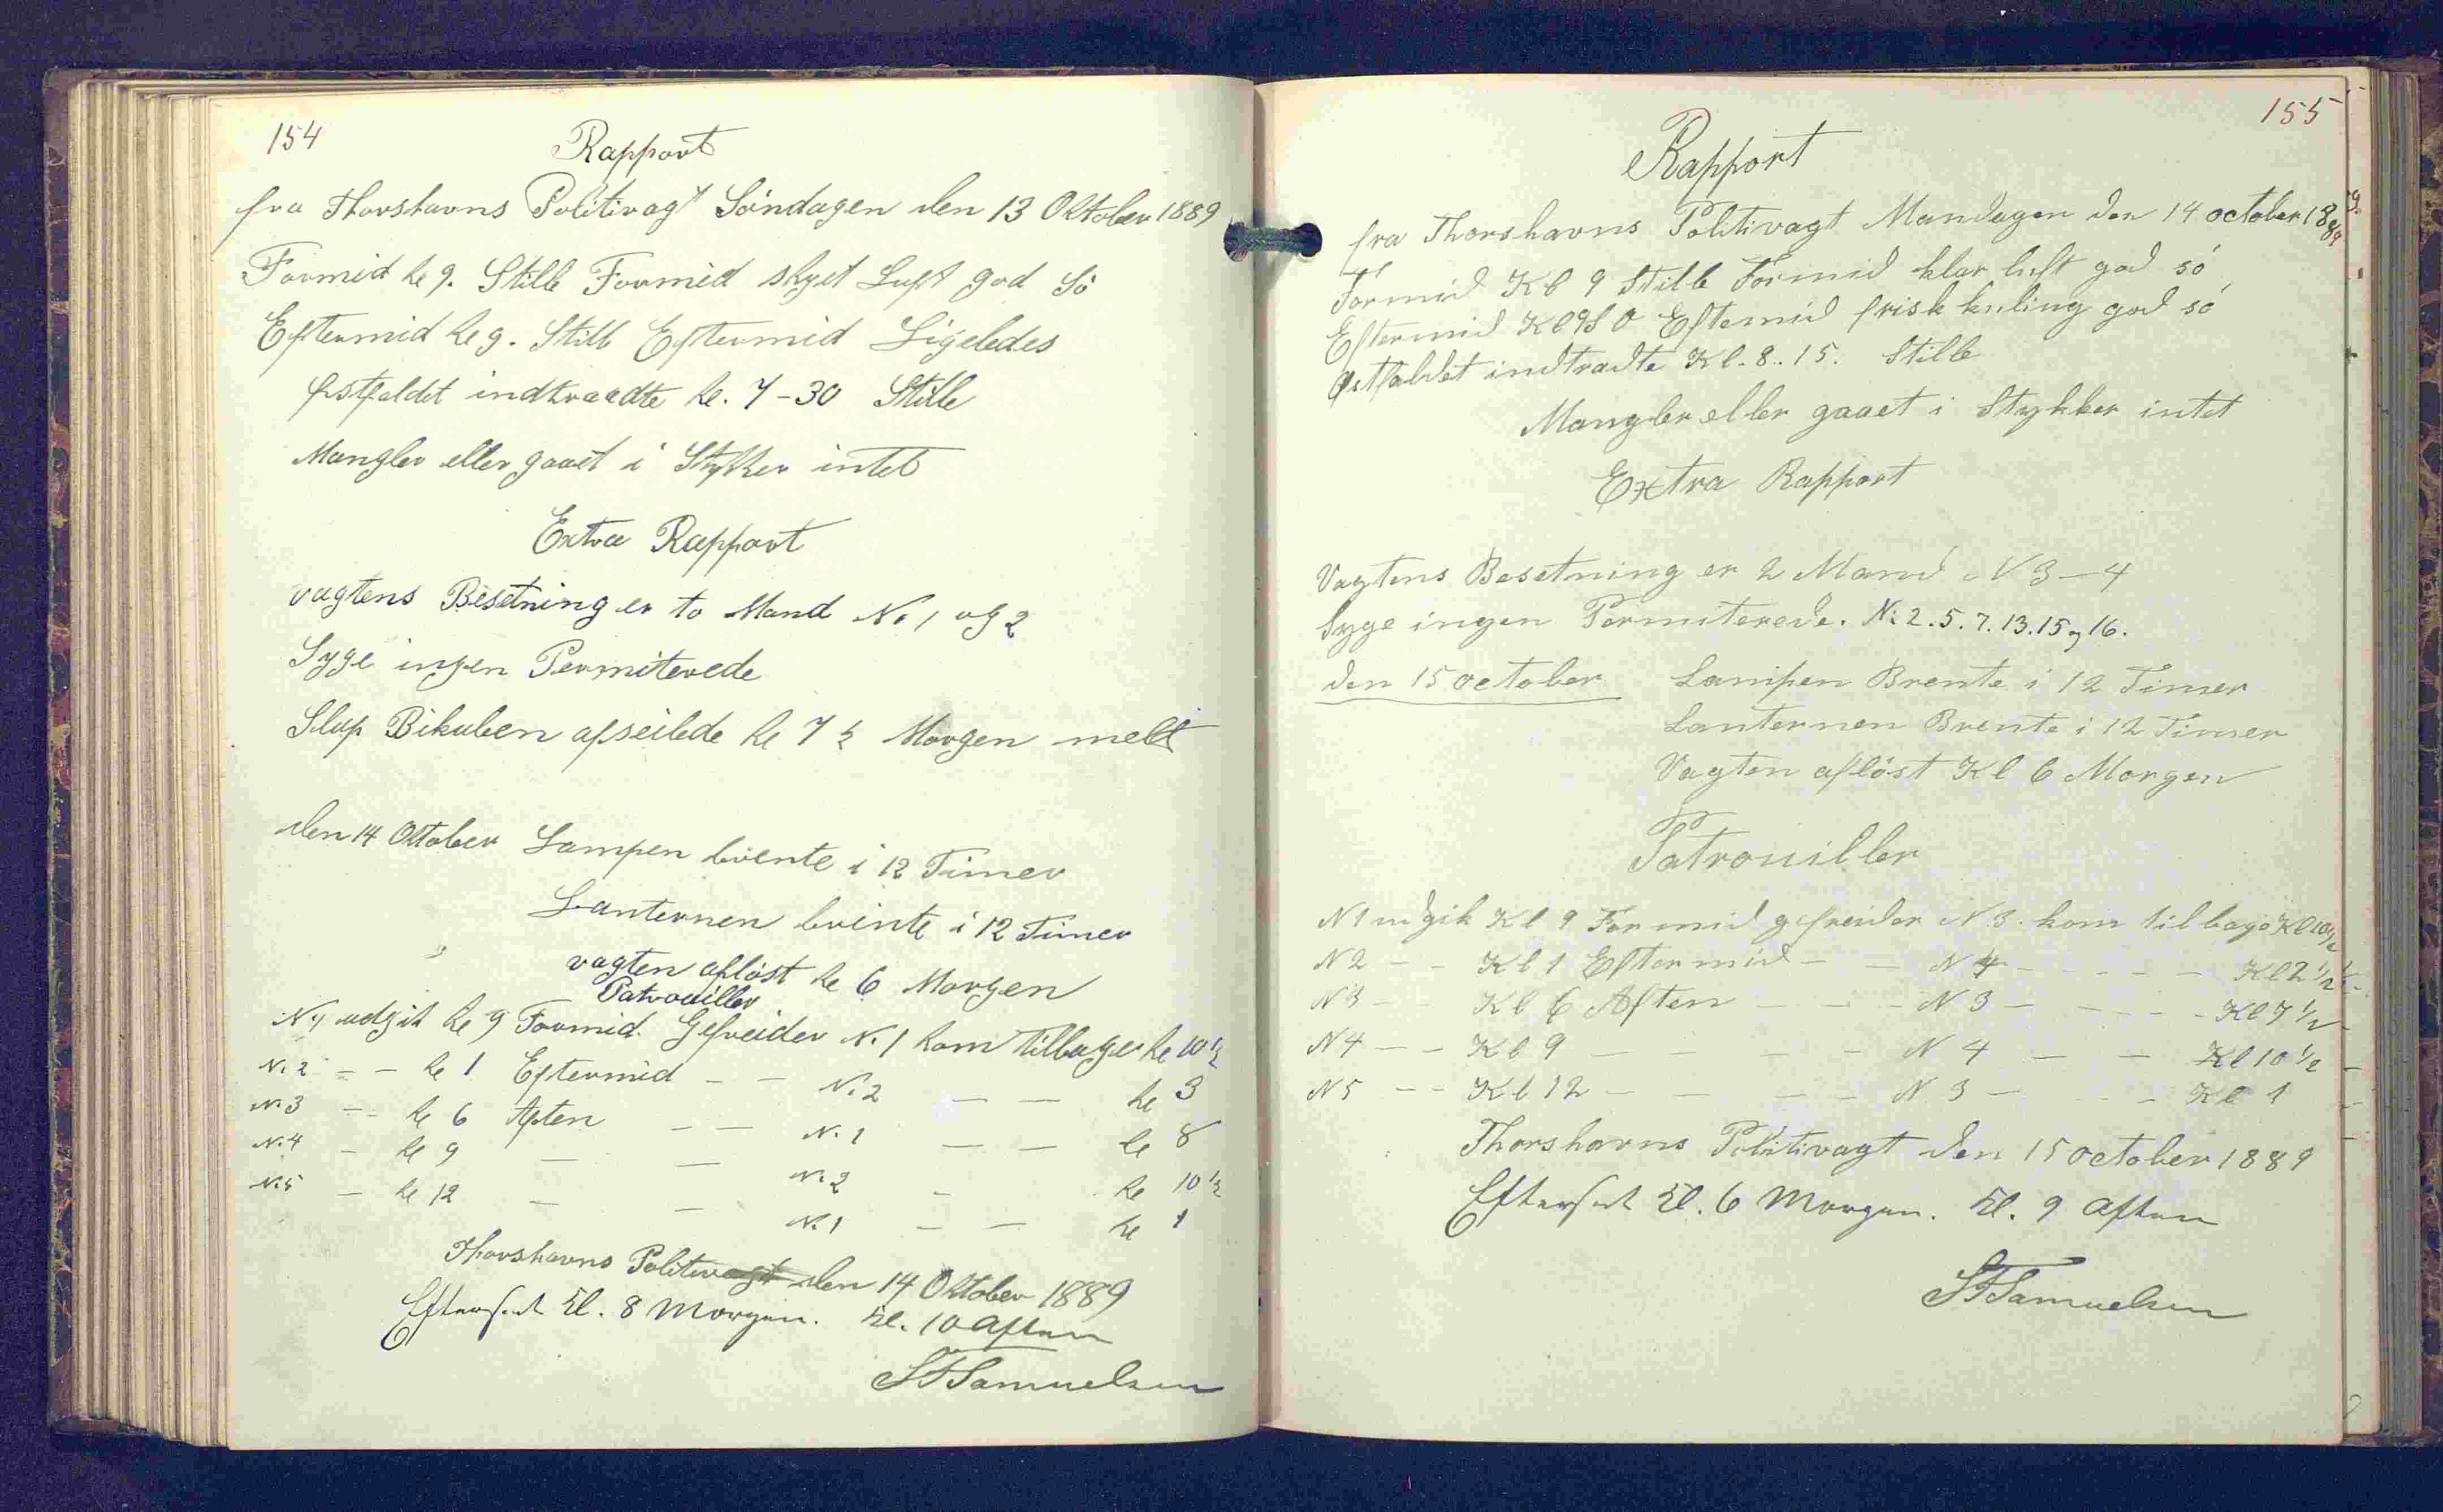 154
Rapport
fra Thorshavns Politivagt Söndagen den 13 Oktober 1889
Formid kl 9. Stille Formid skyet Luft god Sö
Eftermid kl 9. Stille Eftermid Ligeledes
Østfaldet indtraadte kl. 7-30 Stille
Mangler eller gaaet i Stykker intet
Extra Rapport
vagtens Besetning er to Mand No 1 og 2
Syge ingen Permiterede
Slup Bikuben afseilede kl 7 ½ Morgen meldt
den 14 Oktober Lampen brente i 12 Timer
Lanternen brente i 12 Timer
vagten aflöst kl 6 Morgen
Patrouiller
N. 1 udgik kl 9 Formid. Gefreider N. 1 kom tilbage kl 10 ½
N. 2 - - kl 1 Eftermid - - N. 2 - - kl 3
N. 3 - kl 6 Aften - - N. 1 - - kl 8
N. 4 - kl 9 - - N. 2 - kl 10 ½
N. 5 - kl 12 - - N. 1 - - kl 1
Thorshavns Politivagt den 14 Oktober 1889
Efterset Kl. 8 Morgen. Kl. 10 Aften
SFSamuelsen
155
Rapport
fra Thorshavns Politivagt Mandagen den 14 october 1889
Formid Kl 9 Stille Formid klar luft god sö
Eftermid Kl 9 S O Eftemid frisk kuling god sö
Østfaldet indtradte Kl. 8..15. Stille
Mangler eller gaaet i Stykker intet
Extra Rapport
Vagtens Besetning er 2 Mand N 3-4
Syge ingen Permiterede. N: 2. 5. 7. 13. 15 og 16.
den 15 october Lampen Brente i 12 Timer
Lanternen Brente i 12 Timer
Vagten aflöst Kl 6 Morgen
Patrouiller
N 1 udgik Kl 9 Formid gefreider N 3. kom tilbage Kl 10 ½
N 2 - - Kl 1 Eftermid - - N 4 - - - - - Kl 2 ½
N 3 - - Kl 6 Aften - - - N 3 - - - - - Kl 7 ½
N 4 - - Kl 9 - - - N 4 - - Kl 10 ½
N 5 - - Kl 12 - - - - N 3 - - - - Kl 1
Thorshavns Politivagt den 15 october 1889
Efterset Kl. 6 Morgen. Kl. 9 Aften
SFSamuelsen